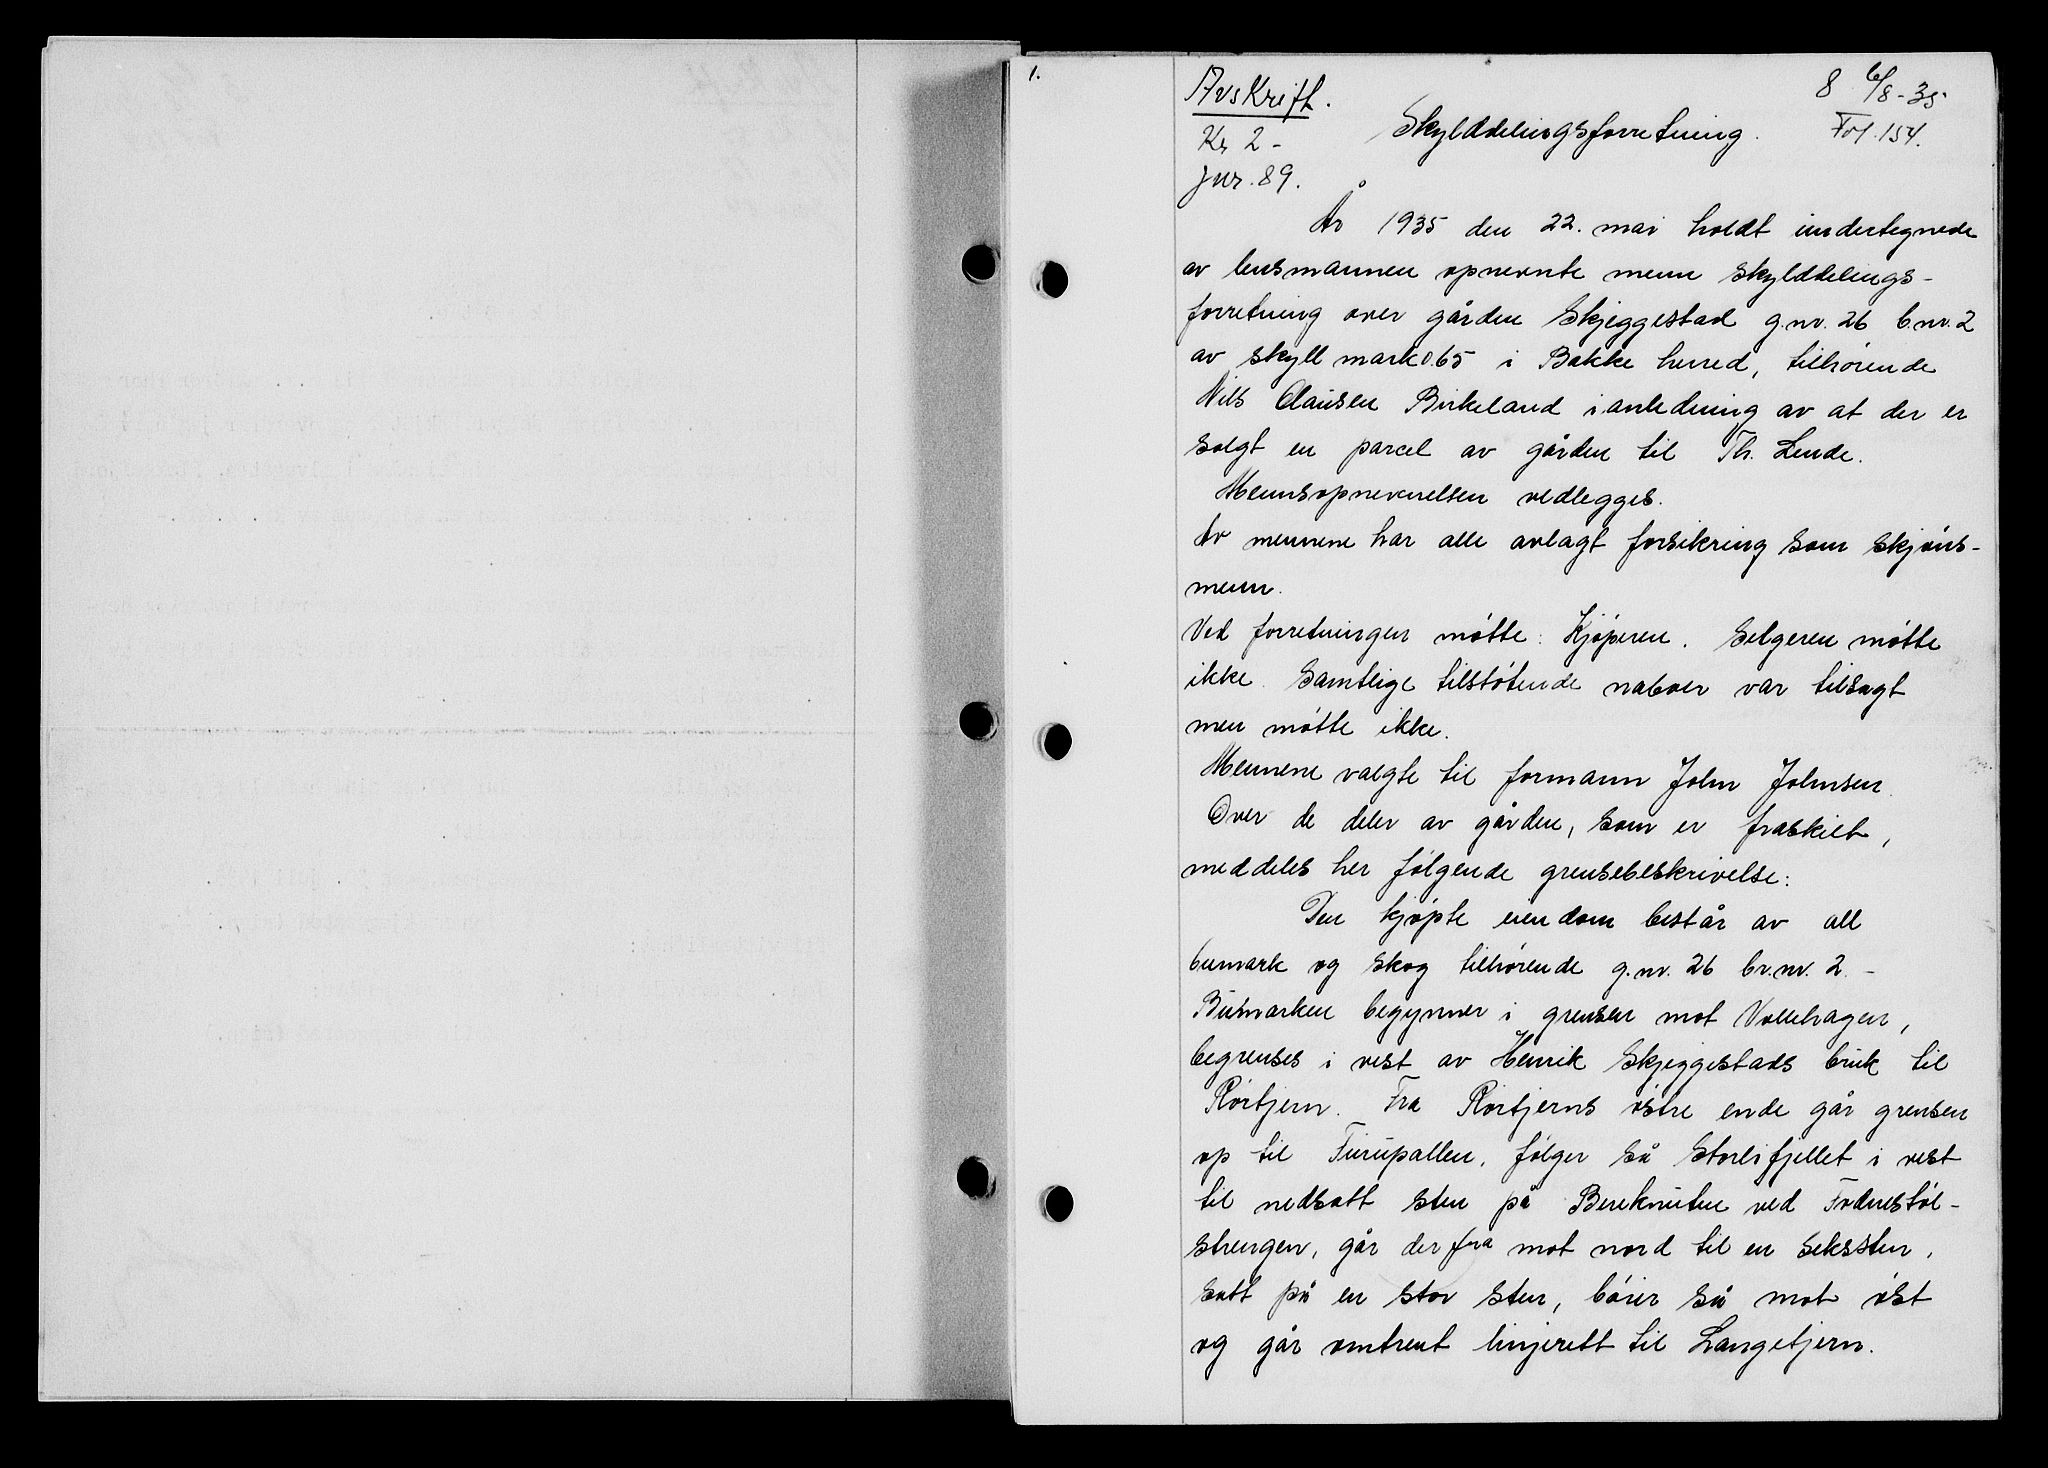 1.
Avskrift.
8 6/8-35
Skylddelingsforretning.
Fol. 154.
Kr 2 -
Jnr. 89.
År 1935 den 22. mai holdt undertegnede
av lensmannen opnevnte menn skylddelings-
forretning over gården Skjeggestad g.nr. 26 b.nr. 2
av skyll mark 0.65 i Bakke herred, tilhørende
Nils Clausen Birkeland i anledning av at der er
solgt en parcel av gården til Th. Lende.
Mennsopnevnelsen vedlegges.
Av mennene har alle avlagt forsikring som skjøns-
menn.
Ved forretningen møtte: Kjøperen. Selgeren møtte
ikke. Samtlige tilstøtende naboer var tilsagt
men møtte ikke.
Mennene valgte til formann John Johnsen
Over de deler av gården, som er fraskilt,
meddeles her følgende grensebeskrivelse:
Den kjøpte eiendom består av all
bumark og skog tilhørende g.nr. 26 br.nr. 2. -
Bumarken begynner i grensen mot Vollehagen,
begrenses i vest av Henrik Skjeggestads bruk til
Rørtjern. Fra Rørtjerns østre ende går grensen
op til Furupallen, følger så Storlifjellet i vest
til nedsatt sten på Bereknuten ved Fodnestøl-
strengen, går der fra mot nord til en seksten,
satt på en stor sten, bøier så mot øst
og går omtrent linjerett til Langetjern.